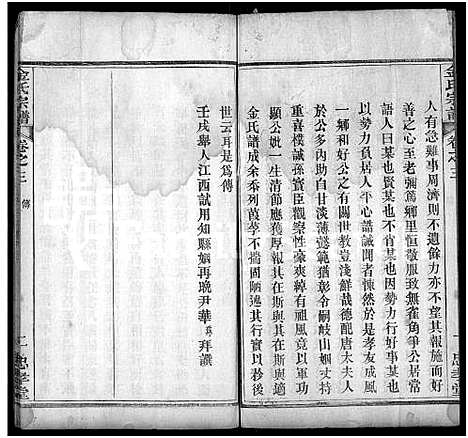 金氏宗譜
卷之三
人有急難事周濟則不遺餘力亦不望其報施而好
善之心至老彌篤鄉里恒敬服致無雀角爭公居常
語人曰某也賢某也不肖某也因勢力行好事某也
以勢力負居人平心譜誠聞者悚然於是孝友成風
一鄉和好公之有關世教豈淺鮮哉德配唐太夫人
亦公多內助自甘淡薄懿範猶彰令嗣岐山武功卓
顯公妣一生節儉應獲厚報其在斯與其在斯與適
金氏譜成余忝列葭莩不揣固陋述其行實以矜後
世云耳是為傳
壬戌舉人江西試用知縣姻再晚尹華拜譔
一 忠孝堂
金氏宗譜
卷之三
傳
二 忠孝堂